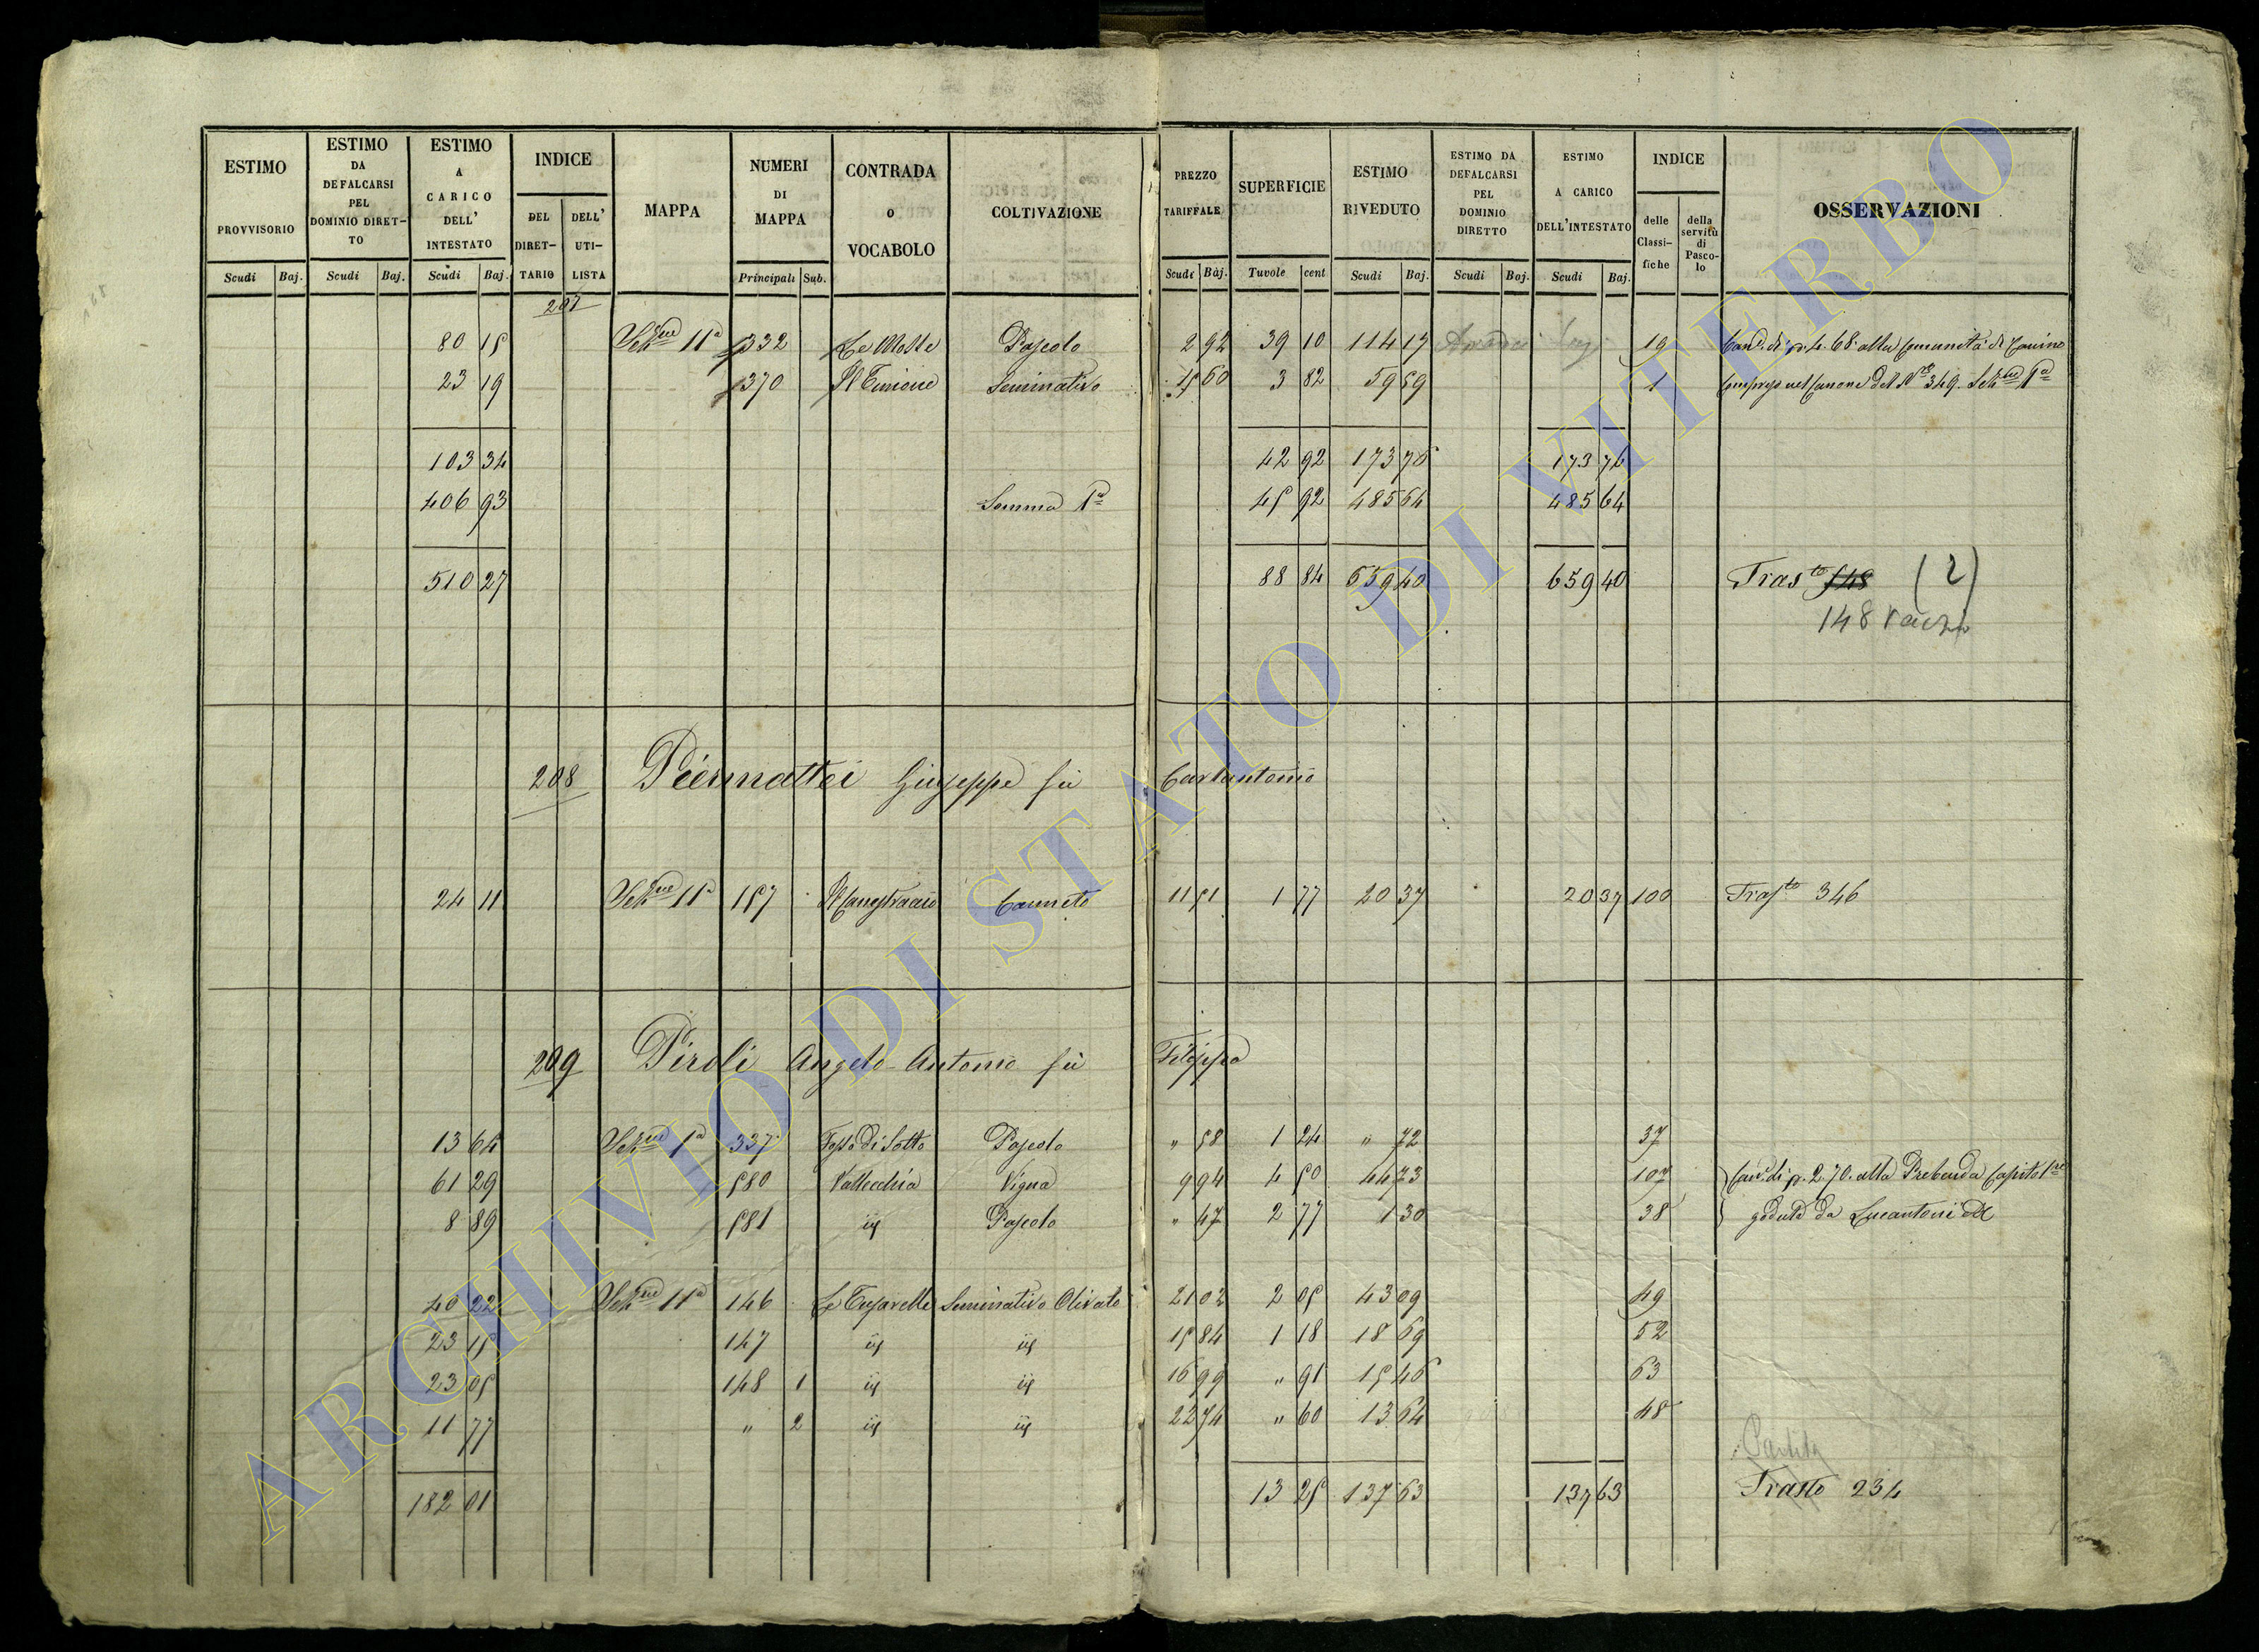 ESTIMO PROVVISORIO Scudi Baj.
ESTIMO DA DEFALCARSI PEL DOMINIO DIRETTO Scudi Baj.
ESTIMO A CARICO DELL' INTESTATO Scudi Baj.
INDICE DEL DIRETTARIO DELL' UTILISTA
MAPPA
NUMERI DI MAPPA Principali Sub.
CONTRADA O VOCABOLO
COLTIVAZIONE
PREZZO TARIFFALE Scudi Baj.
SUPERFICIE Tuvole cent
ESTIMO RIVEDUTO Scudi Baj.
ESTIMO DA DEFALCARSI PEL DOMINIO DIRETTO Scudi Baj.
ESTIMO A CARICO DELL'INTESTATO Scudi Baj.
INDICE delle Classifiche della servitù di Pascolo
OSSERVAZIONI
207
80 15 Sezne 11a 332 Le Mosse Pascolo 2 92 39 10 114 17 19 Cane di p. 4. 68 alla Comunità di Canino
23 19 370 Seminativo 15 60 3 82 59 59 1 Compreso nel Canone del No 349. Sezne 1a
103 34 42 92 173 76 173 76
406 93 Somma 1a 45 92 485 64 485 64
510 27 88 84 659 40 659 40 Trasto 148 (2)
148
208 Piermattei Giuseppe fù Carlantonio
24 11 Sezne 11a 157 Canneto 11 51 1 77 20 37 20 37 100 Trasto 346
209 Piroli Angelo Antonio fù Filippo
13 64 Sezne 1a 337 Fosso di Sotto Pascolo " 58 1 24 " 72 37
61 29 580 Vallecchia Vigna 9 94 4 50 44 73 107 Cane di p. 2. 70. alla Prebenda Capitolre
8 89 581 id Pascolo " 47 2 77 1 30 38 goduta da Lucantoni
40 22 Sezne 11a 146 Seminativo Olivato 21 02 2 05 43 09 49
23 15 147 id id 15 84 1 18 18 69 52
23 05 148 1 id id 16 99 " 91 15 46 63
11 77 " 2 id id 22 74 " 60 13 64 48
Partita
182 01 13 25 137 63 137 63 Trasto 234
ARCHIVIO DI STATO DI VITERBO